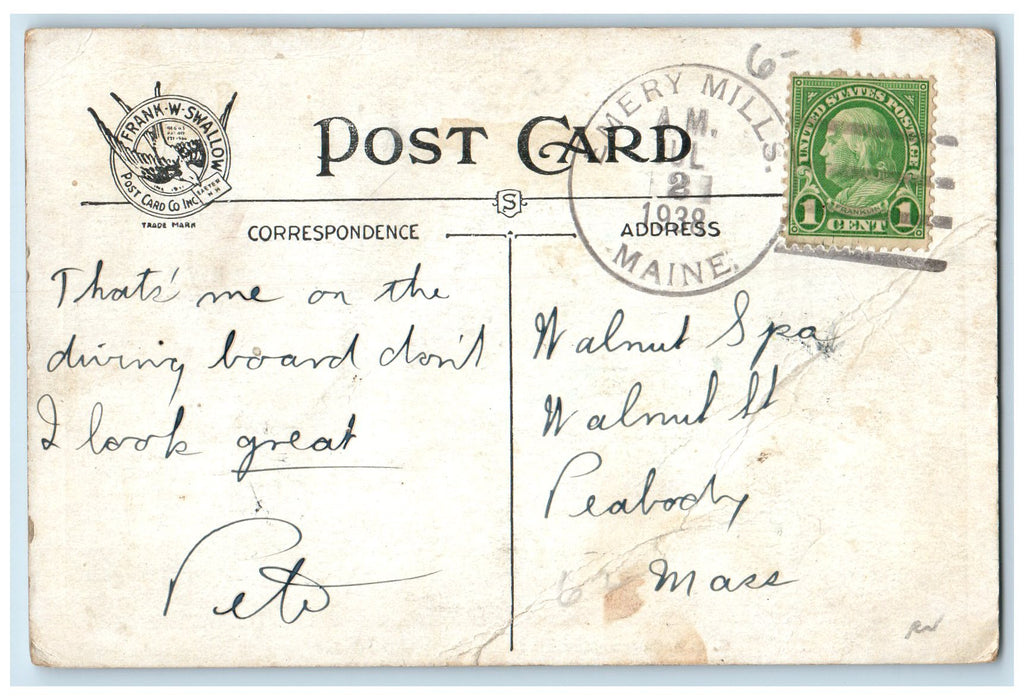 FRANK·W·SWALLOW
POST CARD CO INC
EXETER N.H.
TRADE MARK
POST CARD
S
CORRESPONDENCE
ADDRESS
EMERY MILLS.
A.M.
2
1938
MAINE.
6-
UNITED STATES POSTAGE
FRANKLIN
1 CENT 1
Thats' me on the
diving board don't
I look great
Pete
Walnut Spa
Walnut St
Peabody
Mass
6-
RW